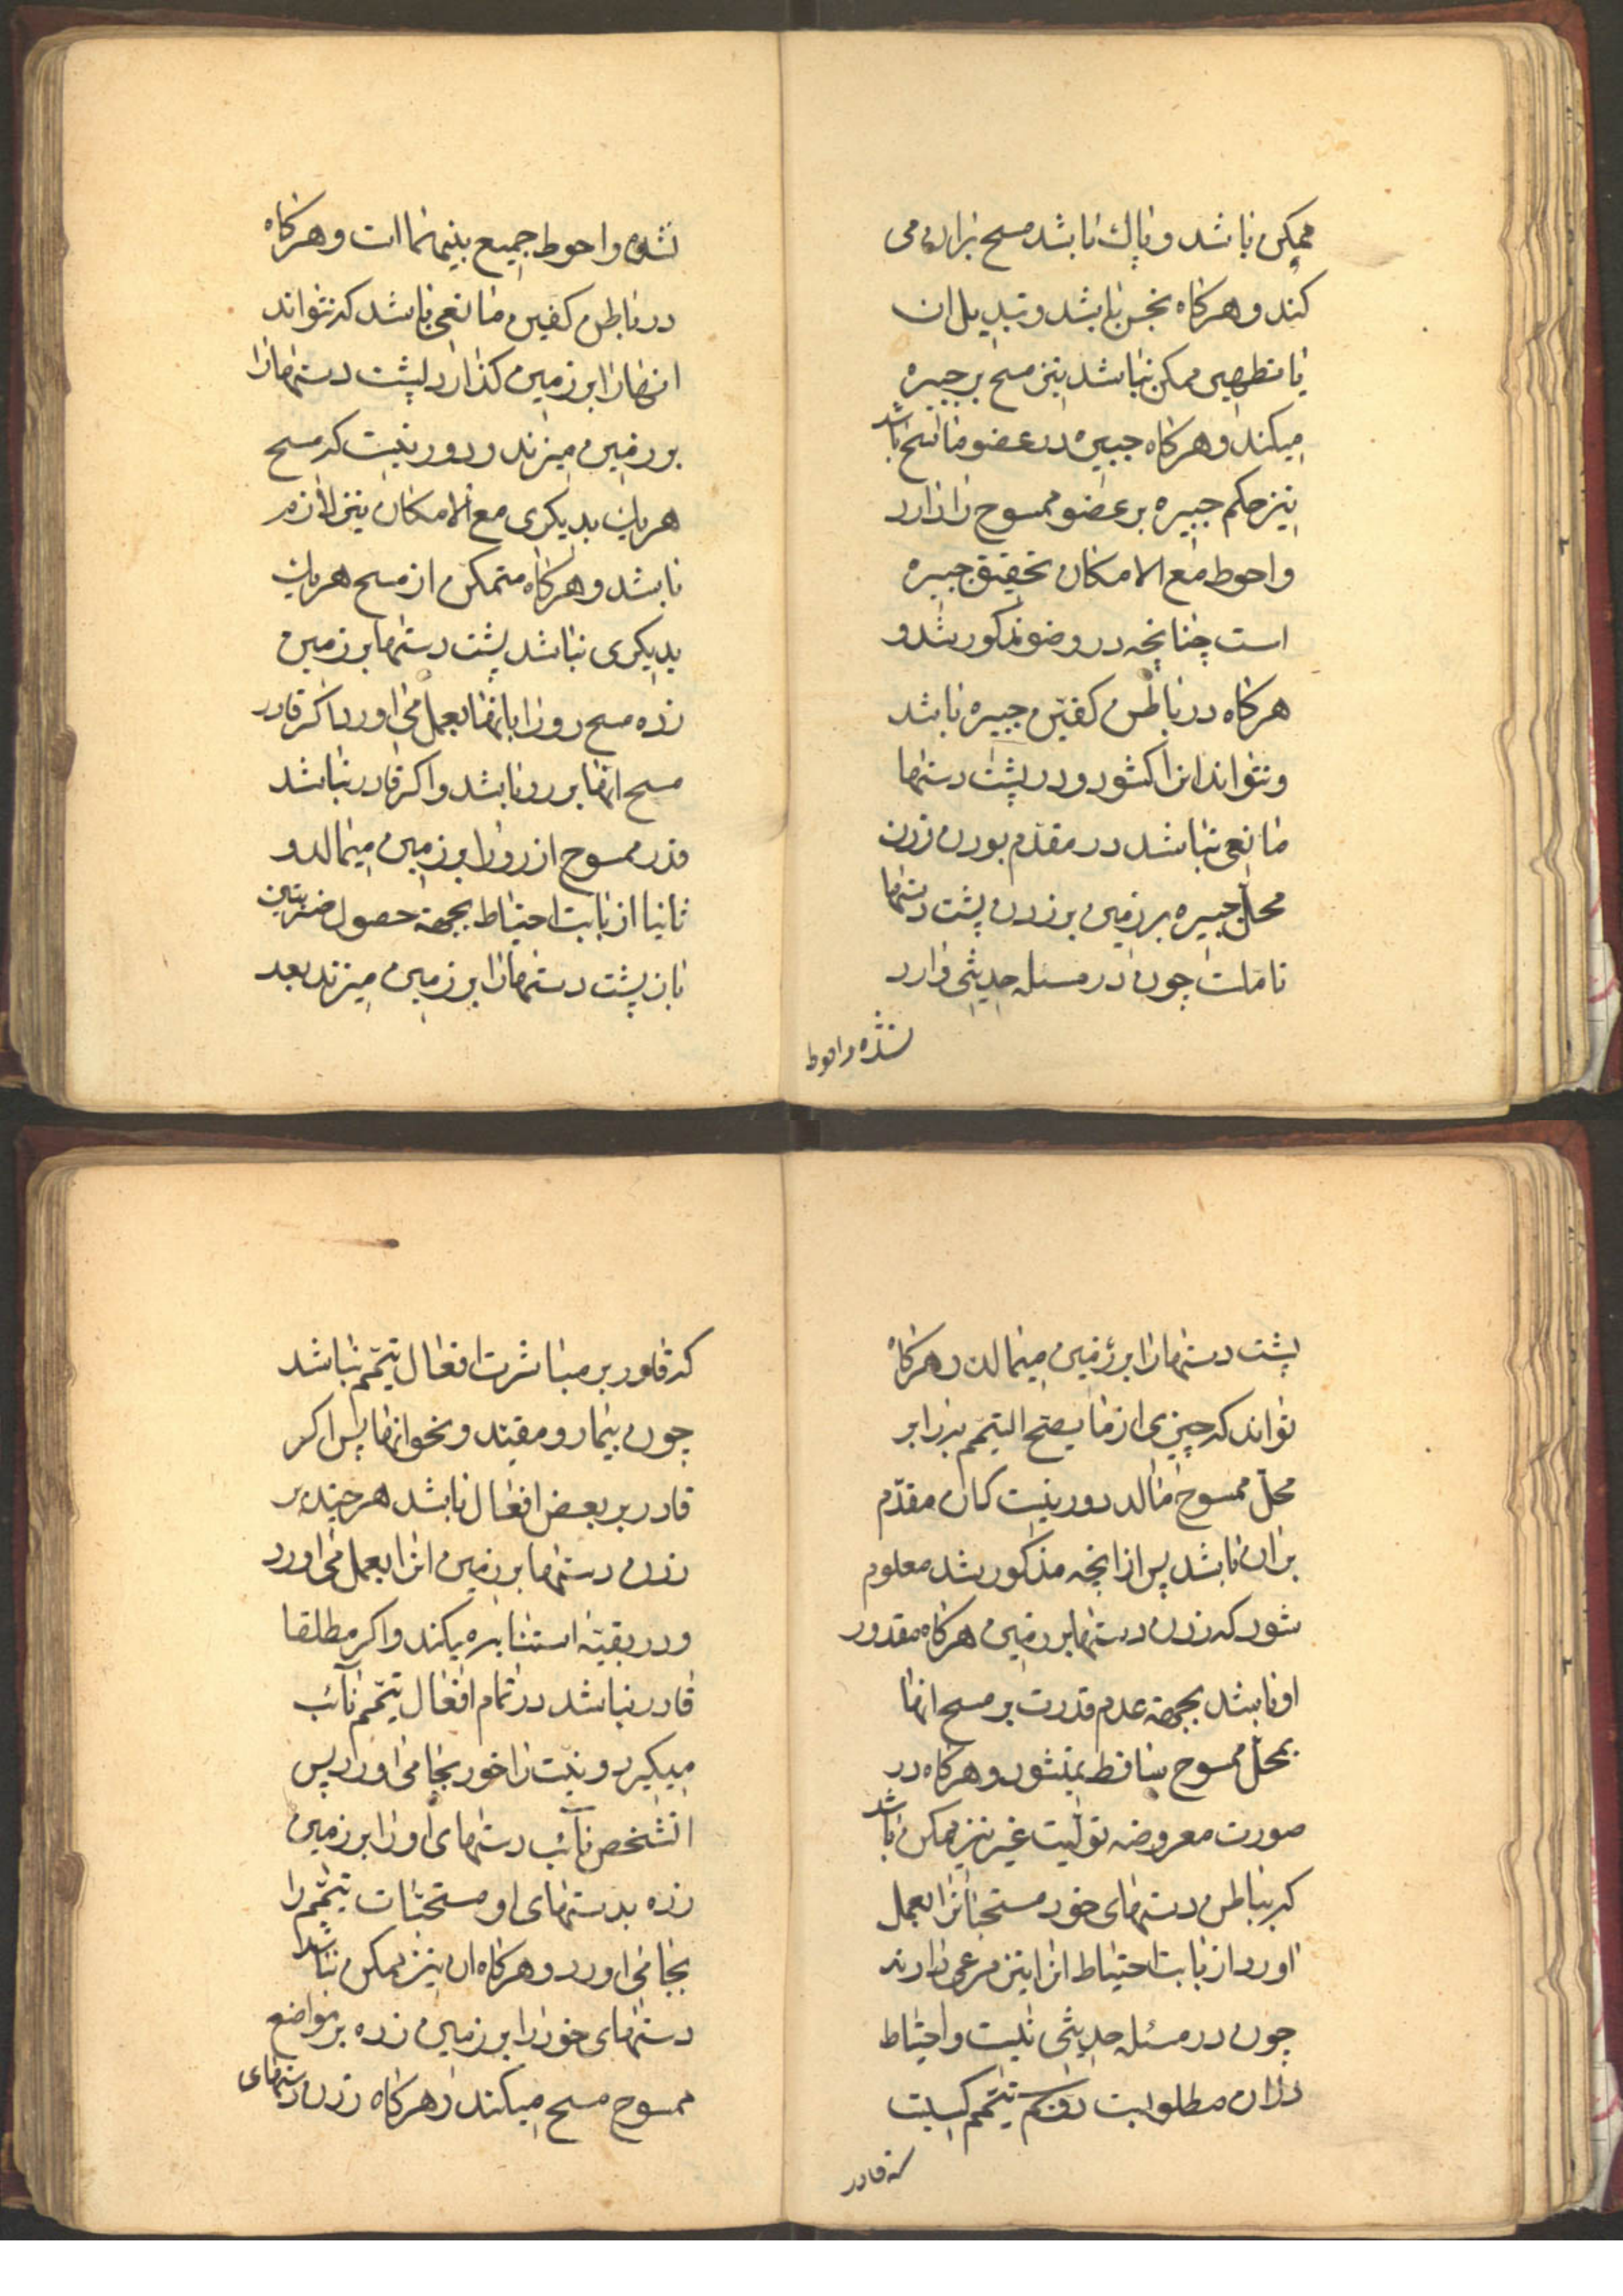 ممکن باشد و پاک باشد مسح بران می
کند و هرکاه نجس باشد و تبدیل ان
یا تطهیر ممکن نباشد نیز مسح بر جبیره
میکند و هرکاه جبیره در عضو ماسح باشد
نیز حکم جبیره بر عضو ممسوح را دارد
و احوط مع الامکان تخفیف جبیره
است چنانچه در وضو مذکور شد و
هرکاه در باطن کفین جبیره باشد
و نتواند انرا کشود و در پشت دستها
مانعی نباشد در مقدّم بودن زدن
محل جبیره بر زمین بر زدن پشت دستها
تاملست چون در مسئله حدیثی وارد
نشده و احوط
نشده و احوط جمیع بینهما است و هرکاه
در باطن کفین مانعی باشد که نتواند
انها را بر زمین کذارد پشت دستها را
بر زمین میزند و دور نیست که مسح
هر یک بدیکری مع الامکان نیز لازم
باشد و هرکاه متمکن از مسح هر یک
بدیکری نباشد پشت دستها بر زمین
زده مسح رو را بانها بعمل می اورد اکر قادر
مسح انها بر رو باشد و اکر قادر نباشد
قدر ممسوح از رو را بر زمین میمالد و
ثانیا از بابت احتیاط بجهة حصول ضربتین
باز پشت دستها را بر زمین میزند بعد
پشت دستها را بر زمین میمالد و هرکاه
تواند که چیزی از ما یصح التیمم به را بر
محل ممسوح مالد دور نیست کان مقدّم
بر ان باشد پس از انچه مذکور شد معلوم
شود که زدن دستها بر زمین هرکاه مقدور
او باشد بجهة عدم قدرت بر مسح انها
بمحل ممسوح ساقط نمیشود و هرکاه در
صورت معروضه تولیت غیر نیز ممکن باشد
که بباطن دستهای خود مسحها را بعمل
اورد از بابت احتیاط انرا نیز مرعی دارند
چون در مسئله حدیثی نیست و احتیاط
دران مطلوبست تیمم کسیست
که قادر
که قادر بر مباشرت افعال تیمّم نباشد
چون بیمار و مقیّد و نحو انها پس اکر
قادر بر بعض افعال باشد هر چند بر
زدن دستها بر زمین انرا بعمل می اورد
و در بقیّه استنابه میکند و اکر مطلقا
قادر نباشد در تمام افعال تیمّم نآئب
میکیرد و نیّت را خود بجا می اورد پس
انشخص نآئب دستهای او را بر زمین
زده بدستهای او مسحهای تیمّم را
بجا می اورد و هرکاه ان نیز ممکن نباشد
دستهای خود را بر زمین زده بر مواضع
ممسوح مسح میکند و هرکاه زدن دستهای